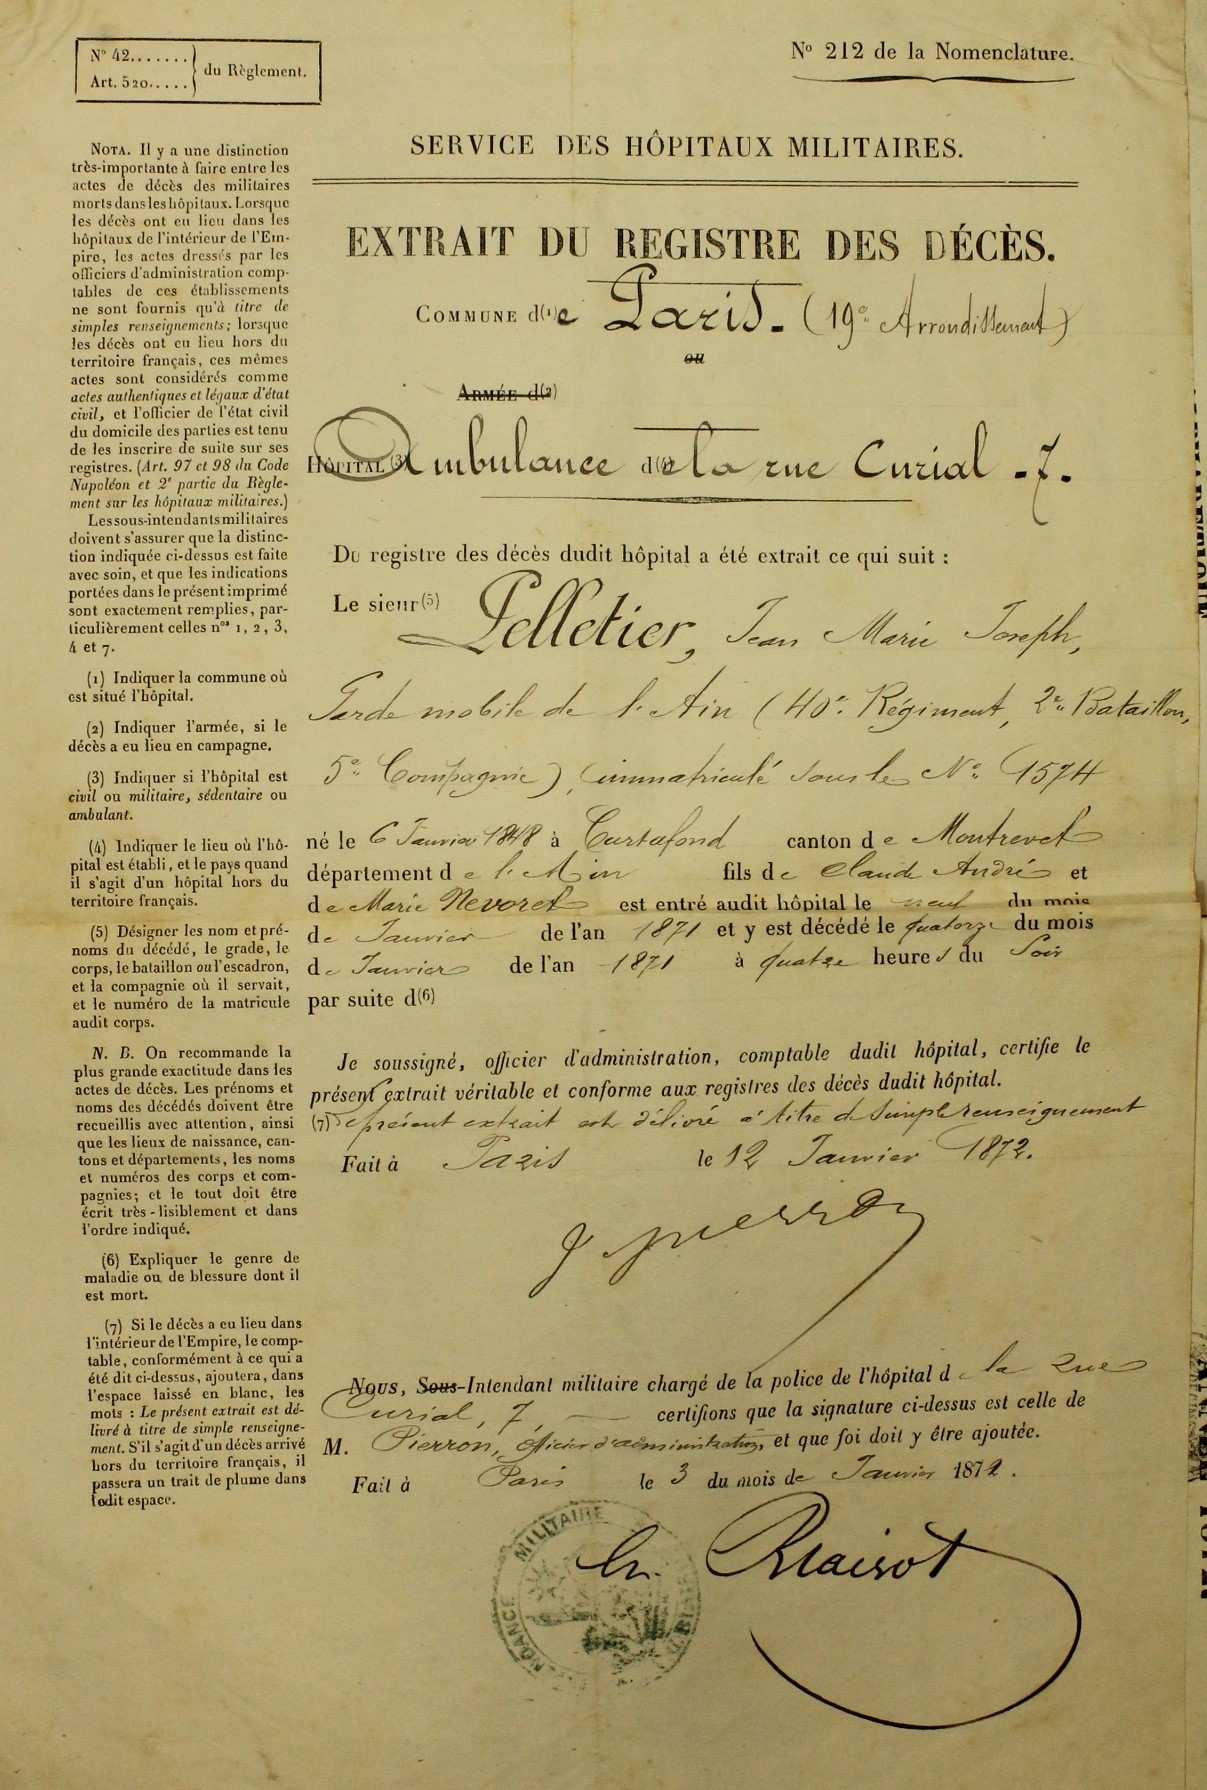 N° 42.......
Art. 520.....
du Règlement.
N° 212 de la Nomenclature.
SERVICE DES HÔPITAUX MILITAIRES.
EXTRAIT DU REGISTRE DES DÉCÈS.
COMMUNE d(1)e Paris. (19e Arrondissement)
ou
ARMÉE d(2)
HÔPITAL (3) Ambulance d(4)e la rue Curial - 7.
Du registre des décès dudit hôpital a été extrait ce qui suit :
Le sieur(5) Pelletier, Jean Marie Joseph,
Garde mobile de l'Ain (40e Régiment, 2e Bataillon,
5e Compagnie), immatriculé sous le N° 1574
né le 6 Janvier 1848 à Curtafond canton de Montrevel
département de l'Ain fils de Claude André et
de Marie Nevoret est entré audit hôpital le neuf du mois
de Janvier de l'an 1871 et y est décédé le quatorze du mois
de Janvier de l'an 1871 à quatre heures du Soir
par suite d(6)
Je soussigné, officier d'administration, comptable dudit hôpital, certifie le
présent extrait véritable et conforme aux registres des décès dudit hôpital.
(7) Le présent extrait est délivré à titre de simple renseignement
Fait à Paris le 12 Janvier 1872.
J Pierron
Nous, Sous-Intendant militaire chargé de la police de l'hôpital de la Rue
Curial, 7, certifions que la signature ci-dessus est celle de
M. Pierron, officier d'administration, et que foi doit y être ajoutée.
Fait à Paris le 3 du mois de Janvier 1872.
MILITAIRE
NOTA. Il y a une distinction
très-importante à faire entre les
actes de décès des militaires
morts dans les hôpitaux. Lorsque
les décès ont eu lieu dans les
hôpitaux de l'intérieur de l'Em-
pire, les actes dressés par les
officiers d'administration comp-
tables de ces établissements
ne sont fournis qu'à titre de
simples renseignements; lorsque
les décès ont eu lieu hors du
territoire français, ces mêmes
actes sont considérés comme
actes authentiques et légaux d'état
civil, et l'officier de l'état civil
du domicile des parties est tenu
de les inscrire de suite sur ses
registres. (Art. 97 et 98 du Code
Napoléon et 2e partie du Règle-
ment sur les hôpitaux militaires.)
Les sous-intendants militaires
doivent s'assurer que la distinc-
tion indiquée ci-dessus est faite
avec soin, et que les indications
portées dans le présent imprimé
sont exactement remplies, par-
ticulièrement celles nos 1, 2, 3,
4 et 7.
(1) Indiquer la commune où
est situé l'hôpital.
(2) Indiquer l'armée, si le
décès a eu lieu en campagne.
(3) Indiquer si l'hôpital est
civil ou militaire, sédentaire ou
ambulant.
(4) Indiquer le lieu où l'hô-
pital est établi, et le pays quand
il s'agit d'un hôpital hors du
territoire français.
(5) Désigner les nom et pré-
noms du décédé, le grade, le
corps, le bataillon ou l'escadron,
et la compagnie où il servait,
et le numéro de la matricule
audit corps.
N. B. On recommande la
plus grande exactitude dans les
actes de décès. Les prénoms et
noms des décédés doivent être
recueillis avec attention, ainsi
que les lieux de naissance, can-
tons et départements, les noms
et numéros des corps et com-
pagnies; et le tout doit être
écrit très-lisiblement et dans
l'ordre indiqué.
(6) Expliquer le genre de
maladie ou de blessure dont il
est mort.
(7) Si le décès a eu lieu dans
l'intérieur de l'Empire, le comp-
table, conformément à ce qui a
été dit ci-dessus, ajoutera, dans
l'espace laissé en blanc, les
mots : Le présent extrait est dé-
livré à titre de simple renseigne-
ment. S'il s'agit d'un décès arrivé
hors du territoire français, il
passera un trait de plume dans
ledit espace.